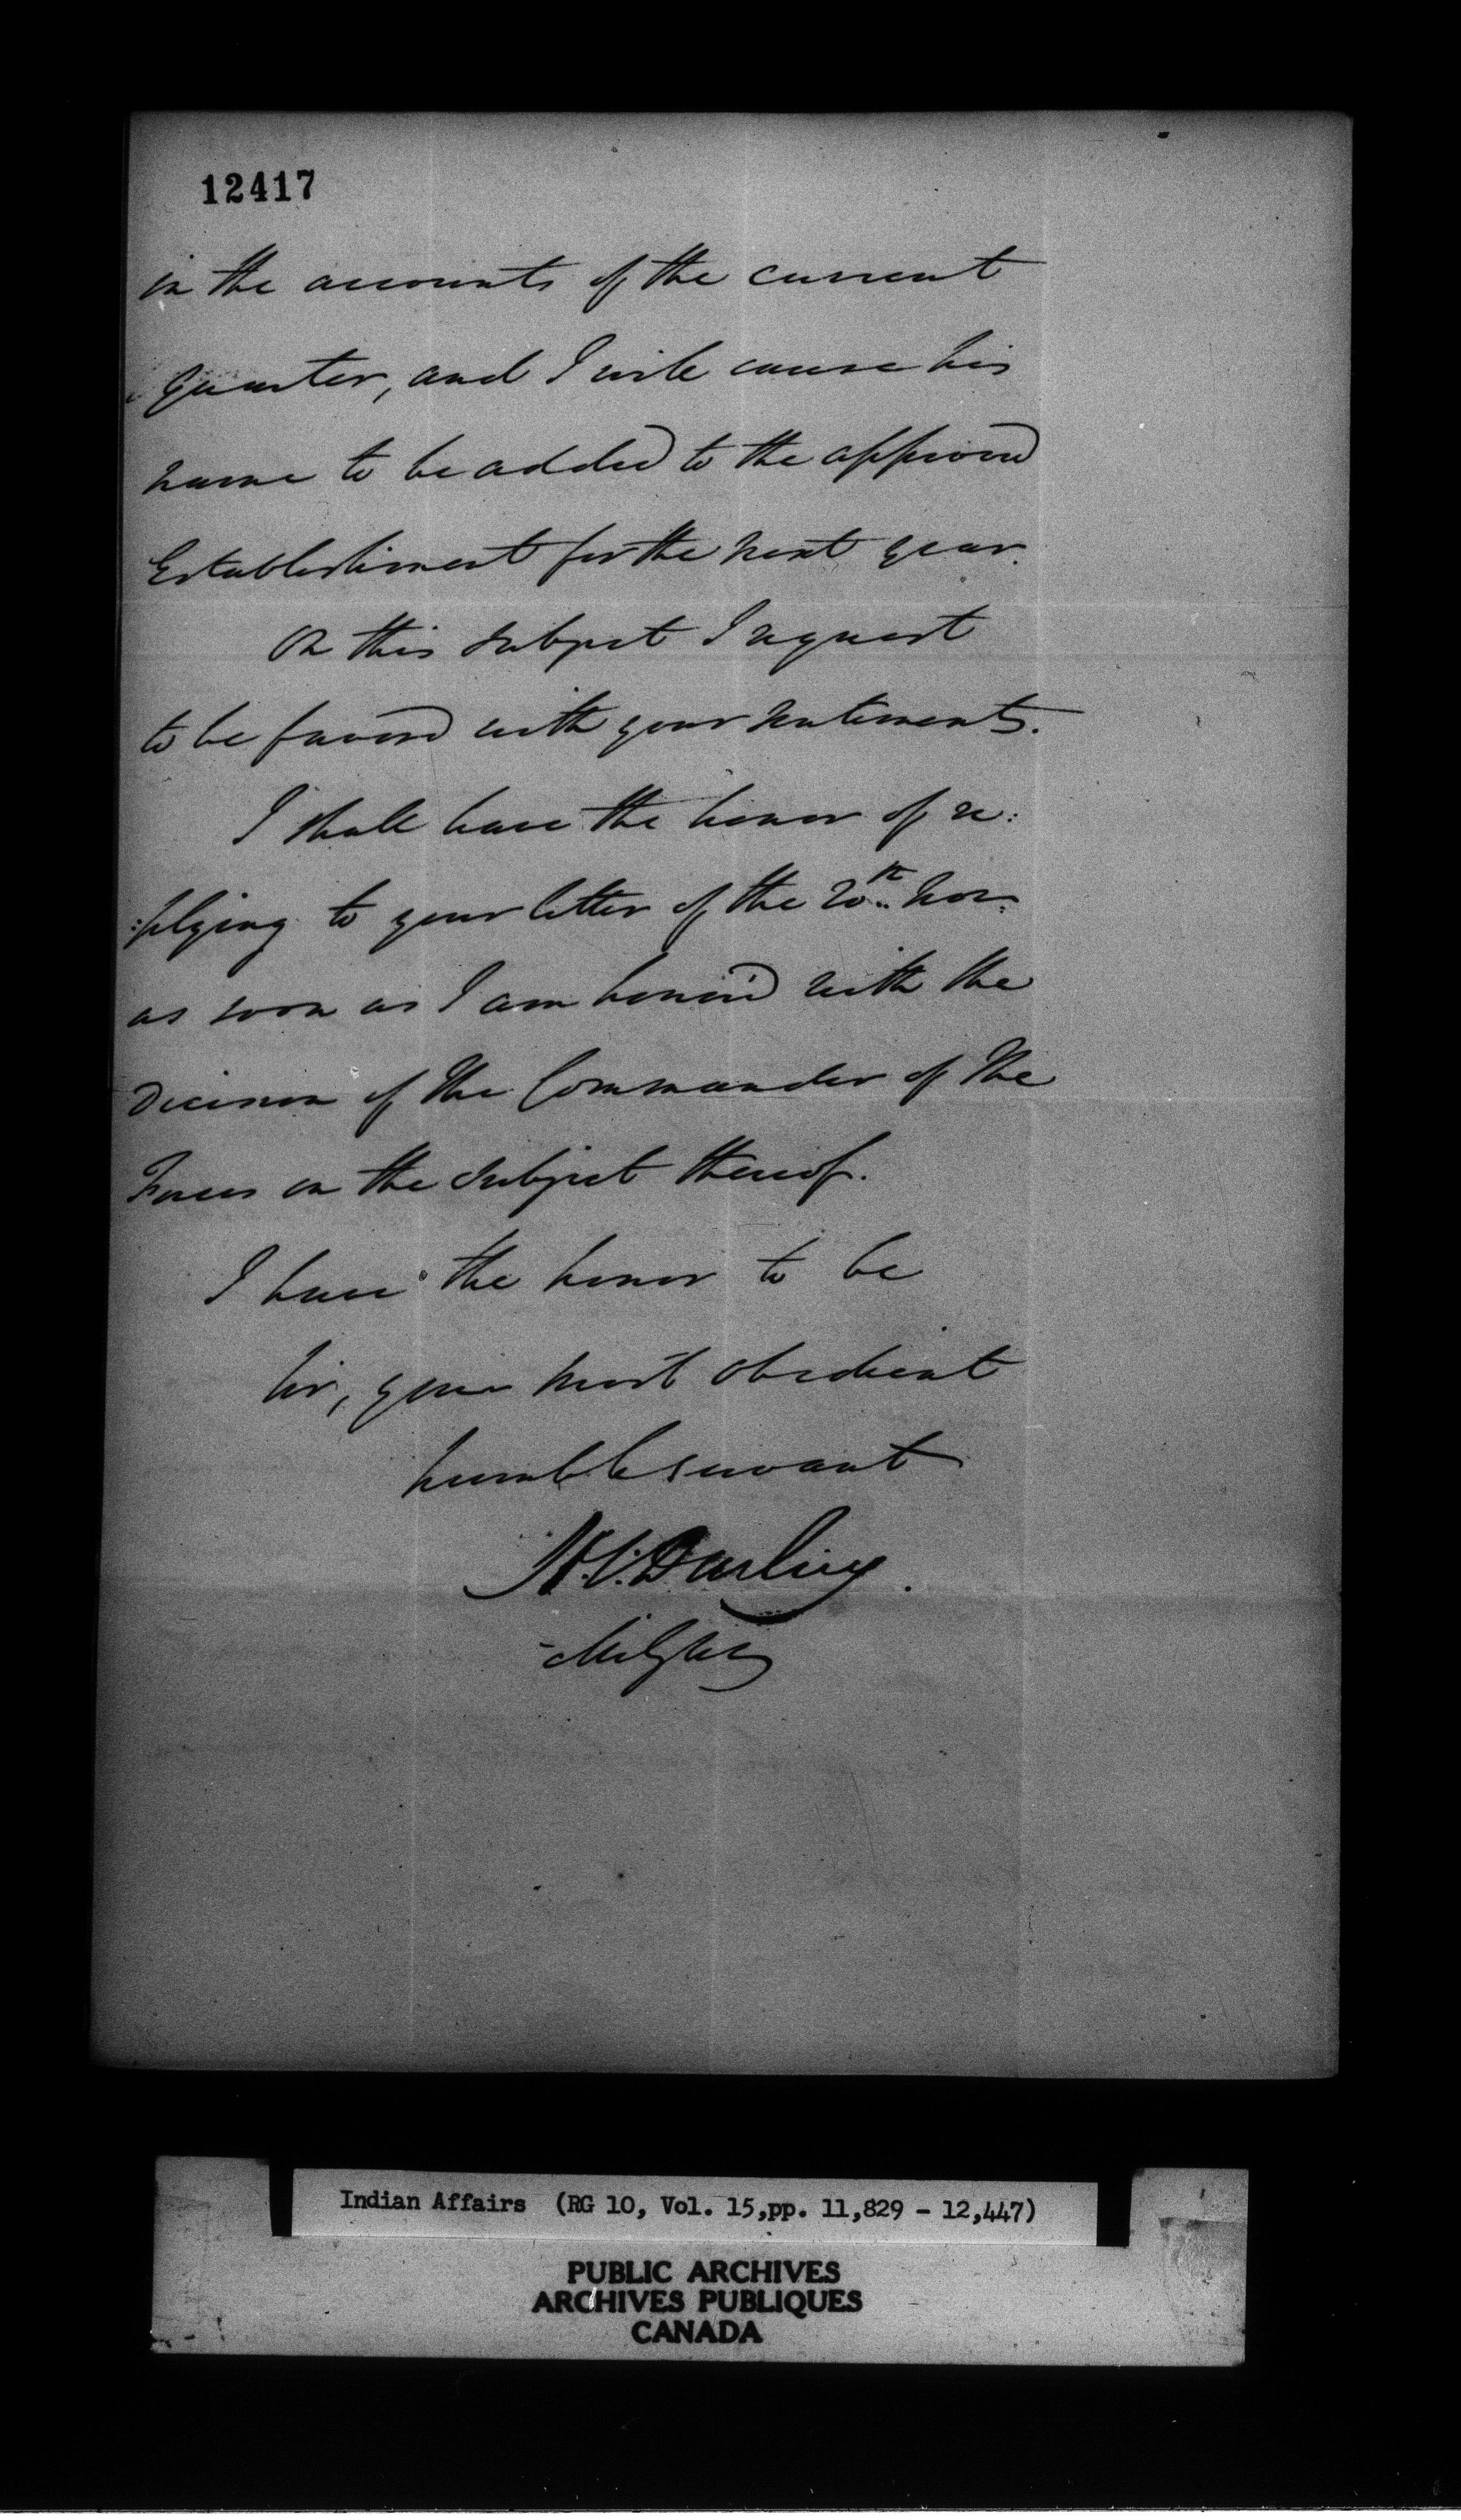 12417
in the accounts of the current
quarter, and I will cause his
name to be added to the approved
Establishment for the next year.
On this subject I request
to be favord with your sentiments.
I shall have the honor of re:
:plying to your letter of the 20th Nov.
as soon as I am honor'd with the
Decision of the Commander of the
Forces on the subject thereof.
I have the honor to be
Sir, your most obedient
humble servant
H.C. Darling.
Mil Secy
Indian Affairs (RG 10, Vol. 15,pp. 11,829 - 12,447)
PUBLIC ARCHIVES
ARCHIVES PUBLIQUES
CANADA